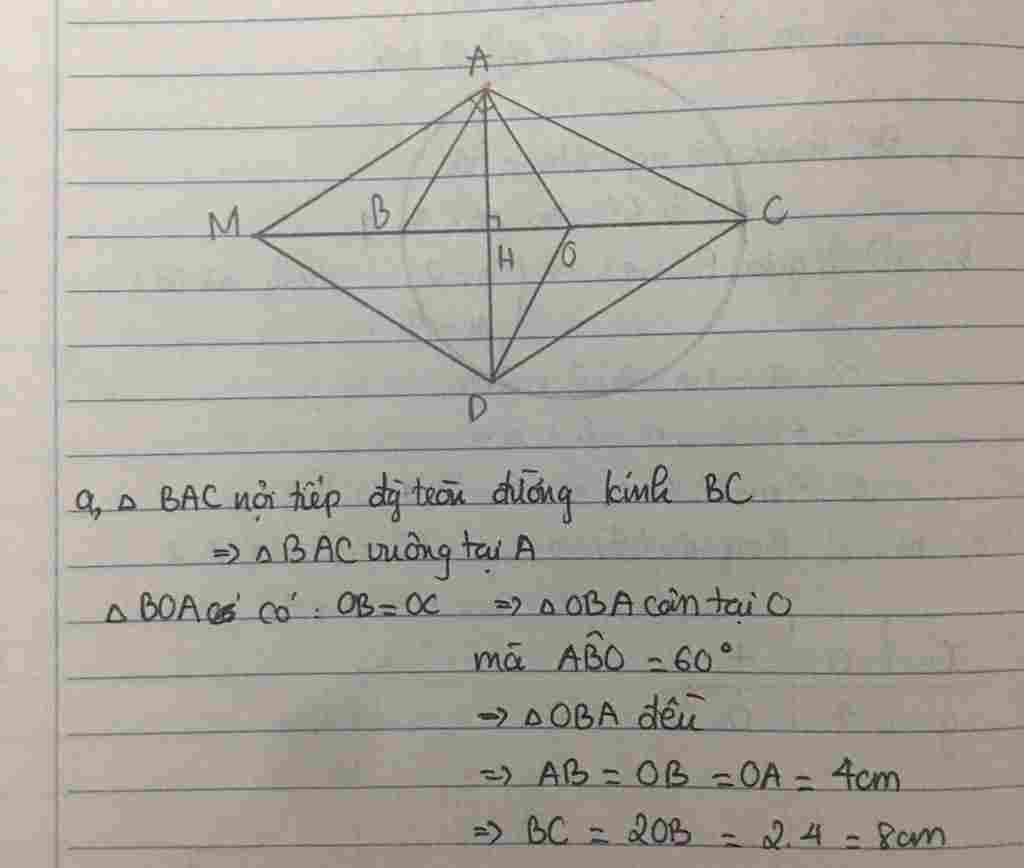 A
M B C
H O
D
a, △ BAC nội tiếp đg tròn đường kính BC
=> △ BAC vuông tại A
△ BOA có : OB = OC => △ OBA cân tại O
mà ABO = 60°
=> △ OBA đều
=> AB = OB = OA = 4cm
=> BC = 2OB = 2.4 = 8cm